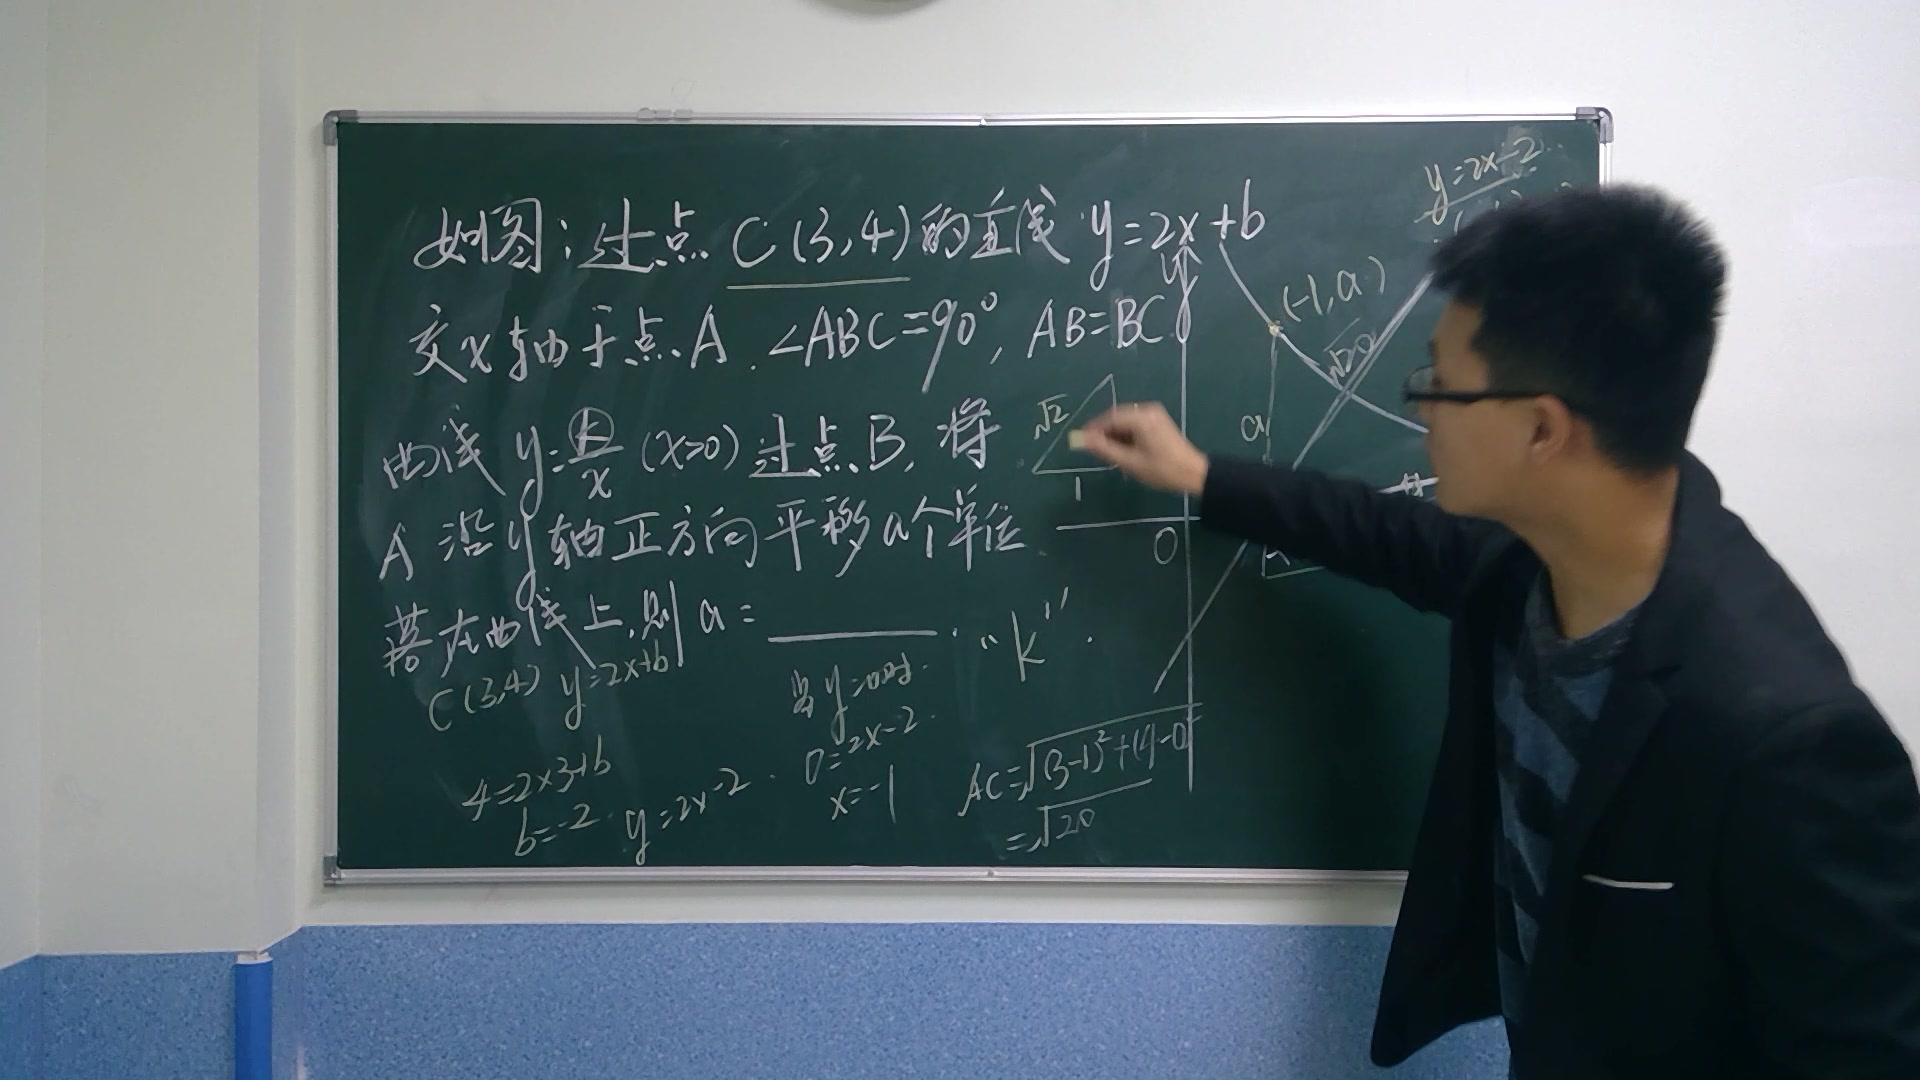 如图：过点 C(3,4)的直线 y=2x+b
交x轴于点A.∠ABC=90°, AB=BC
曲线 y=k/x (x>0)过点B,将
A沿y轴正方向平移a个单位
落在曲线上,则a=____.
"k".
C(3,4) y=2x+b
4=2×3+b
b=-2. y=2x-2.
当y=0时.
0=2x-2.
x=-1
AC=√(3-1)²+(4-0)²
=√20
√2
1
y
0
y=2x-2
(-1,a)
√20
a